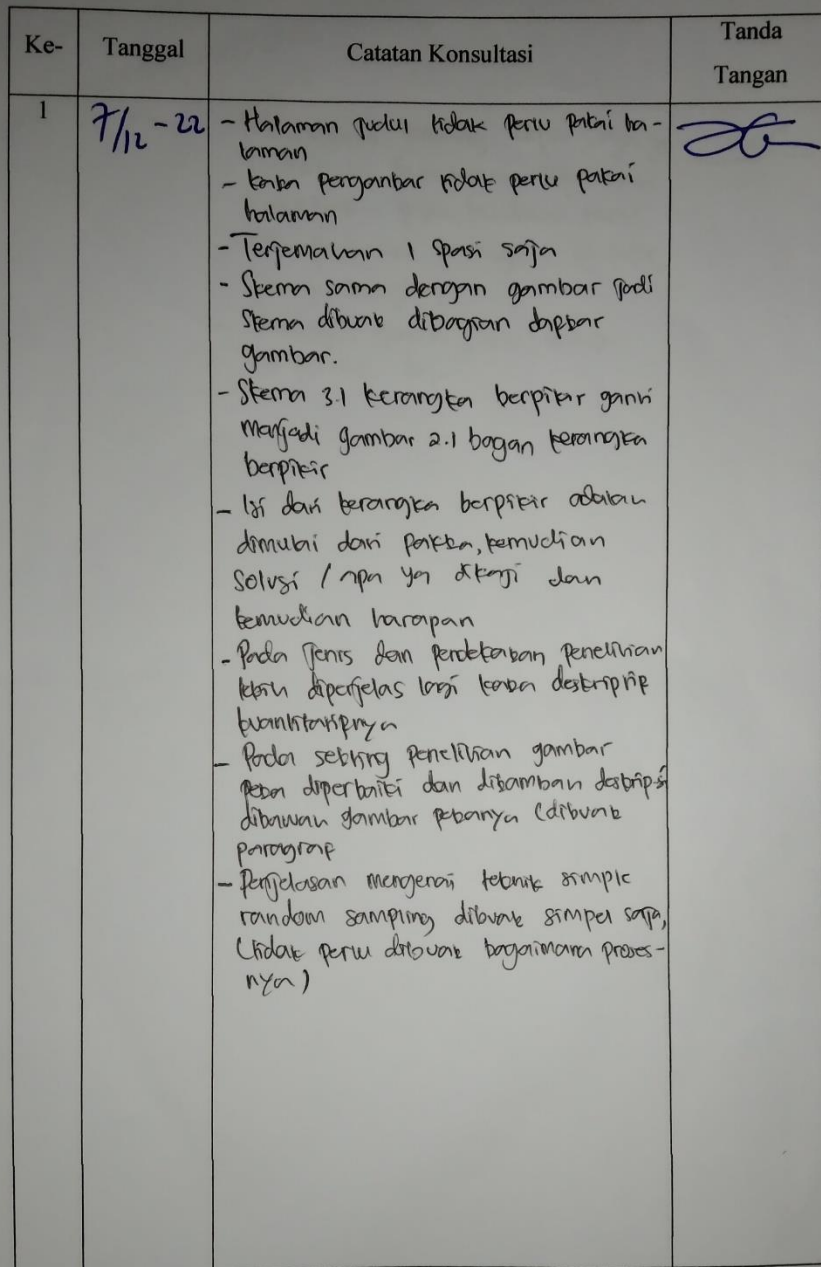 Ke-
Tanggal
Catatan Konsultasi
Tanda
Tangan
1
7/12 - 22
- Halaman judul tidak perlu pakai ha-
laman
- kata pengantar tidak perlu pakai
halaman
- Terjemahan 1 spasi saja
- Skema sama dengan gambar jadi
skema dibuat dibagian daftar
gambar.
- Skema 3.1 kerangka berpikir ganti
menjadi gambar 2.1 bagan kerangka
berpikir
- Isi dari kerangka berpikir adalah
dimulai dari fakta, kemudian
solusi / apa yg dikaji dan
kemudian harapan
- Pada jenis dan pendekatan penelitian
lebih diperjelas lagi kata deskriptif
kuantitatifnya
- Pada setting penelitian gambar
peta diperbaiki dan ditambah deskripsi
dibawah gambar petanya (dibuat
paragraf
- Penjelasan mengenai teknik simple
random sampling dibuat simpel saja,
(tidak perlu dibuat bagaimana proses-
nya)